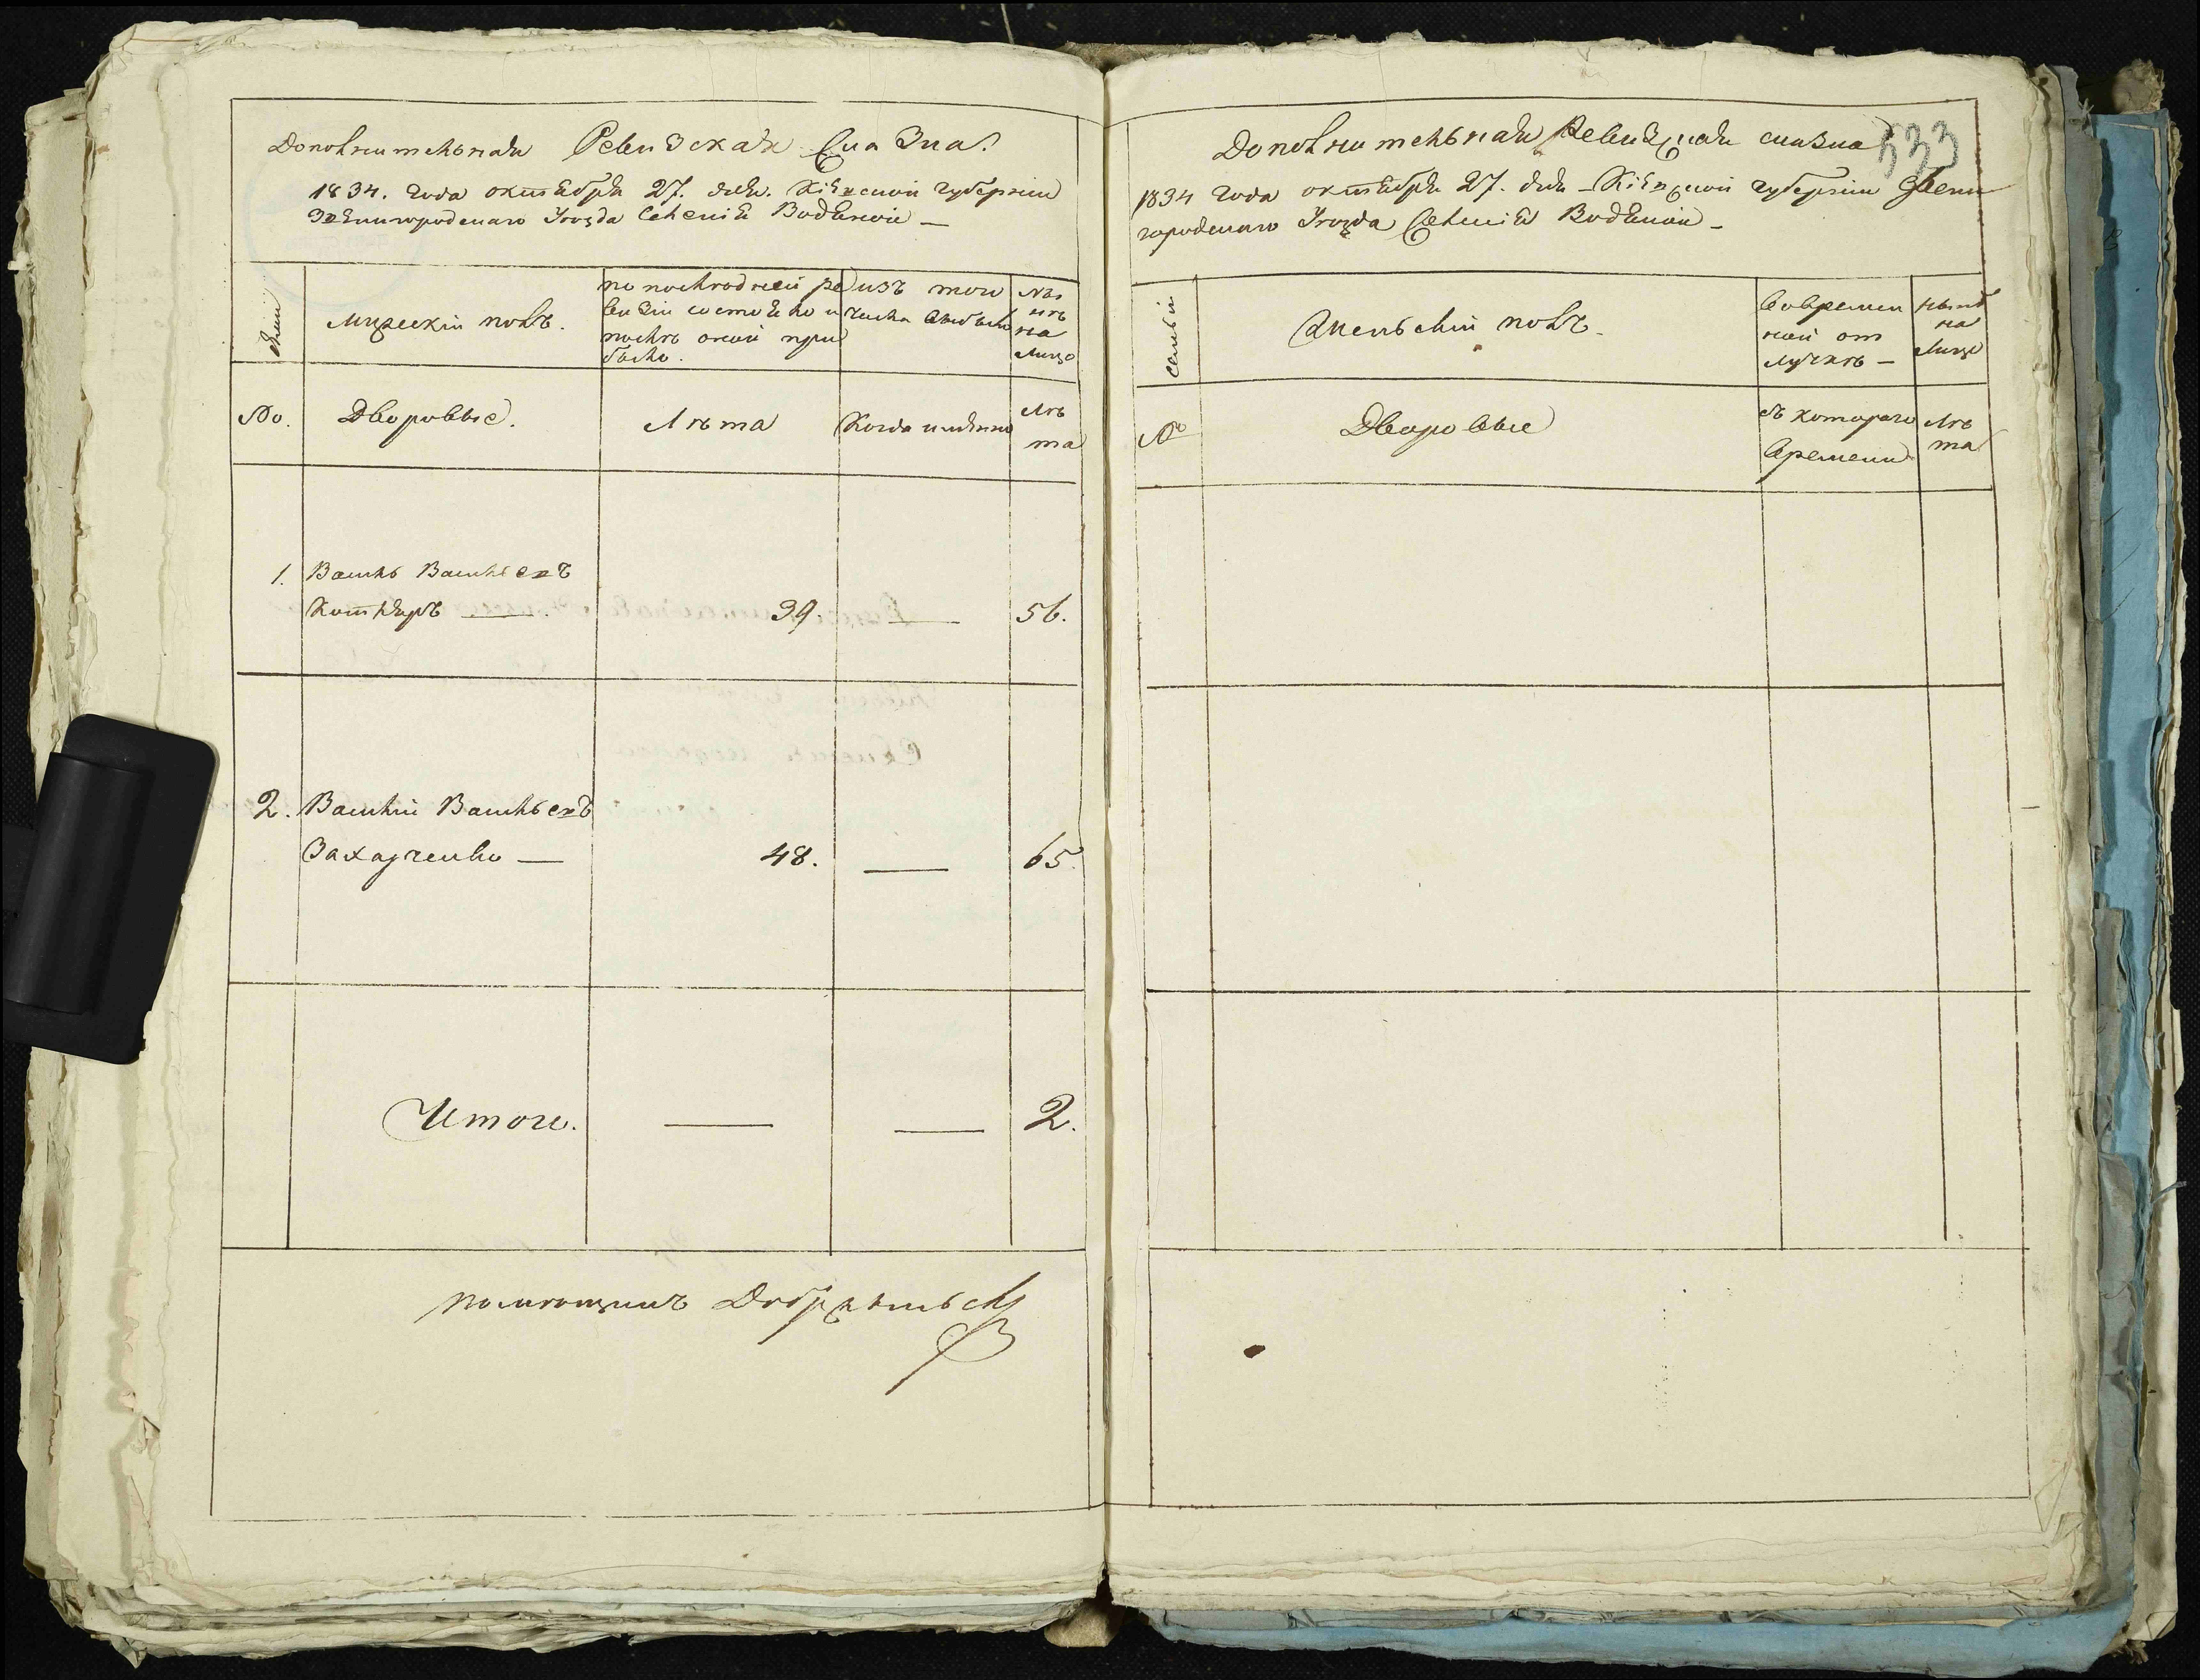 Дополнительная Ревизская Сказка.
1834. Года октября 27. дня. Кіевской губерніи
Звенигородскаго Уѣзда Селенія Водяной —
Семьи
Мужескій полъ.
по послѣдней ре
визіи состояло и
послѣ оной при
было.
изъ того
числа выбыло
Ны
нѣ
на
лицо
No.
Дворовые.
Лѣта
Когда именно
Лѣ
та
1. Василь Васильевъ
39. — 56.
2. Василій Васильевъ
Захарченко — 48. — 65.
Итого. — — 2.
помѣщикъ
533
Дополнительная Ревизская сказка
1834 Года октября 27. дня — Кіевской губерніи Звени
городскаго Уѣзда Селенія Водяной —
семьи
Женскій полъ.
Вовремен
ной от
лучкѣ —
нынѣ
на
лицо
No
Дворовые
съ котораго
Времени
Лѣ
та